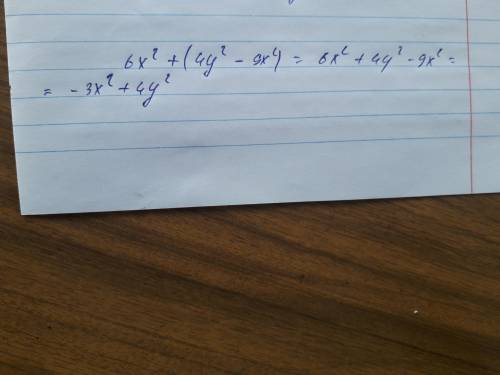 6x² + (4y² - 9x²) = 6x² + 4y² - 9x² =
= - 3x² + 4y²